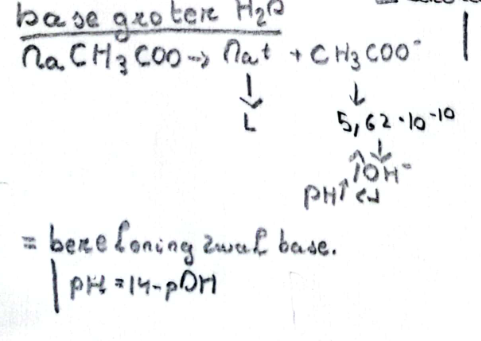 base groter H₂O
NaCH₃COO → Na⁺ + CH₃COO⁻
↓ ↓
L 5,62·10⁻¹⁰
↓
↑OH⁻
pH↑ en
= berekoning zwak base.
pH = 14-pOH